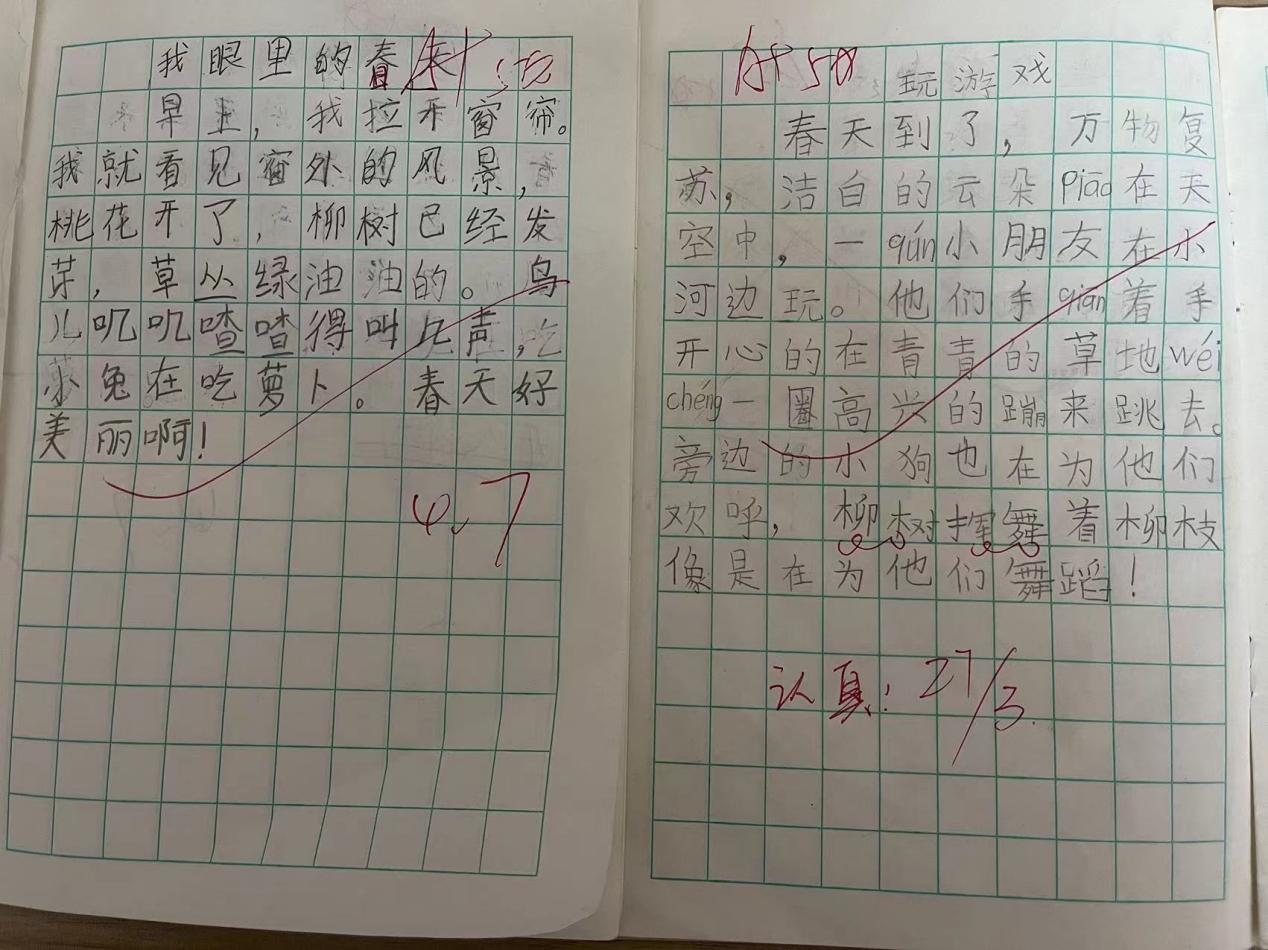 我眼里的春天
早上，我拉开窗帘。
我就看见窗外的风景，
桃花开了，柳树已经发
芽，草丛绿油油的。鸟
儿叽叽喳喳得叫几声，
小兔在吃萝卜。春天好
美丽啊！
4.7
玩游戏
春天到了，万物复
苏，洁白的云朵piāo在天
空中，一qún小朋友在小
河边玩。他们手qiān着手
开心的在青青的草地wéi
chéng一圈高兴的蹦来跳去。
旁边的小狗也在为他们
欢呼，柳树挥舞着柳枝
像是在为他们舞蹈！
认真！27/3.